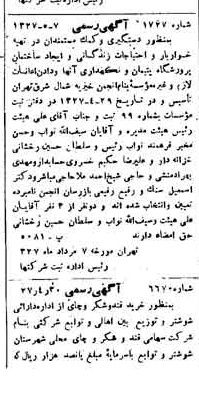 شماره ۱۷۴۷ آگهی رسمی ۷-۵-۱۳۲۷
بمنظور دستگیری و کمك مستمندان در تهیه
خواربار و احتیاجات زندگانی و ایجاد ساختمان
پرورشگاه یتیمان و نگهداری آنها و دادن اعانات
لازم و غیره مؤسسه بنام انجمن خیریه شمال شرق تهران
تأسیس و در تاریخ ۲۹-۴-۱۳۲۷ در دفتر ثبت
مؤسسات بشماره ۹۹ ثبت و جناب آقای علی هیئت
رئیس هیئت مدیره و آقایان سیف‌الله نواب و حسن
مخبر فرهمند نواب رئیس و سلطان حسین رخشانی
خزانه دار و علیرضا حکیم خسروی حسابدار و مهدی
بهرادمنشی و حاجی شیخ احمد ملاحاجی مباشر و دکتر
اسمعیل سنك و رفیع رفیعی بازرسان انجمن نامبرده
تعیین و انتخاب شده اند و دو نفر از ۳ نفر آقایان
علی هیئت و سیف‌الله نواب و سلطان حسین رخشانی
حق امضاء دارند پ - ۵۰۸۱
تهران مورخه ۷ مرداد ماه ۳۲۷
رئیس اداره ثبت شرکتها
شماره ۶۶۷۰ آگهی رسمی ۲۷ر۴ر۳۰
بمنظور خرید قند و شکر و چای از اداره دارائی
شوشتر و توزیع بین اهالی و توابع شرکتی بنام
شرکت سهامی قند و شکر و چای محلی شهرستان
شوشتر و توابع باسرمایه مبلغ پانصد هزار ریال که